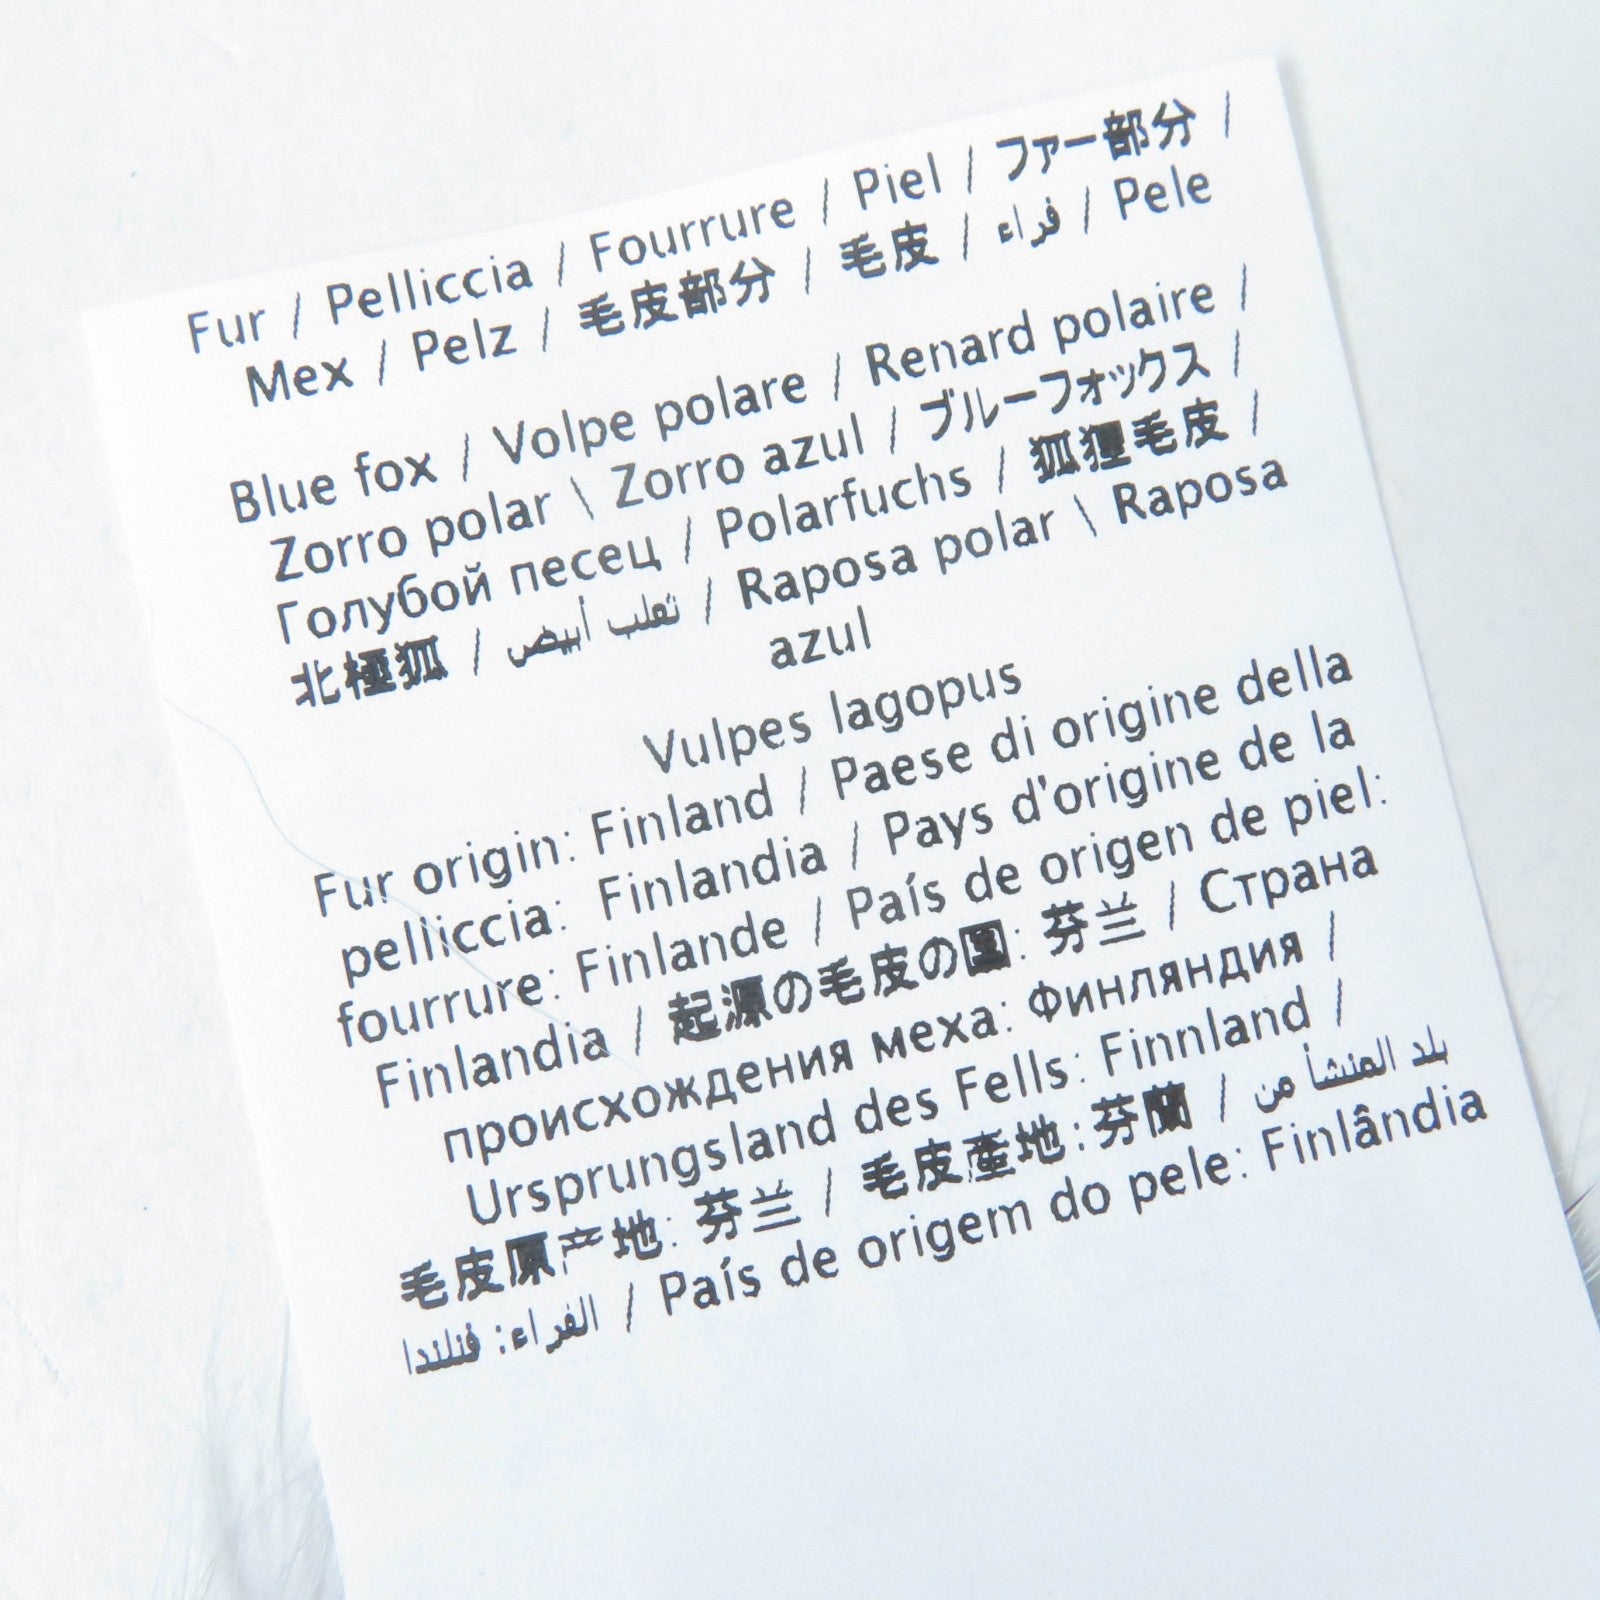 Fur / Pelliccia / Fourrure / Piel / ファー部分 /
Mex / Pelz / 毛皮部分 / 毛皮 / فراء / Pele
Blue fox / Volpe polare / Renard polaire /
Zorro polar \ Zorro azul / ブルーフォックス /
Голубой песец / Polarfuchs / 狐狸毛皮 /
北極狐 / ثعلب أبيض / Raposa polar \ Raposa
azul
Vulpes lagopus
Fur origin: Finland / Paese di origine della
pelliccia: Finlandia / Pays d'origine de la
fourrure: Finlande / País de origen de piel:
Finlandia / 起源の毛皮の国: 芬兰 / Страна
происхождения меха: Финляндия /
Ursprungsland des Fells: Finnland /
毛皮原产地: 芬兰 / 毛皮産地:芬蘭 / بلد المنشأ من
الفراء: فنلندا / País de origem do pele: Finlândia